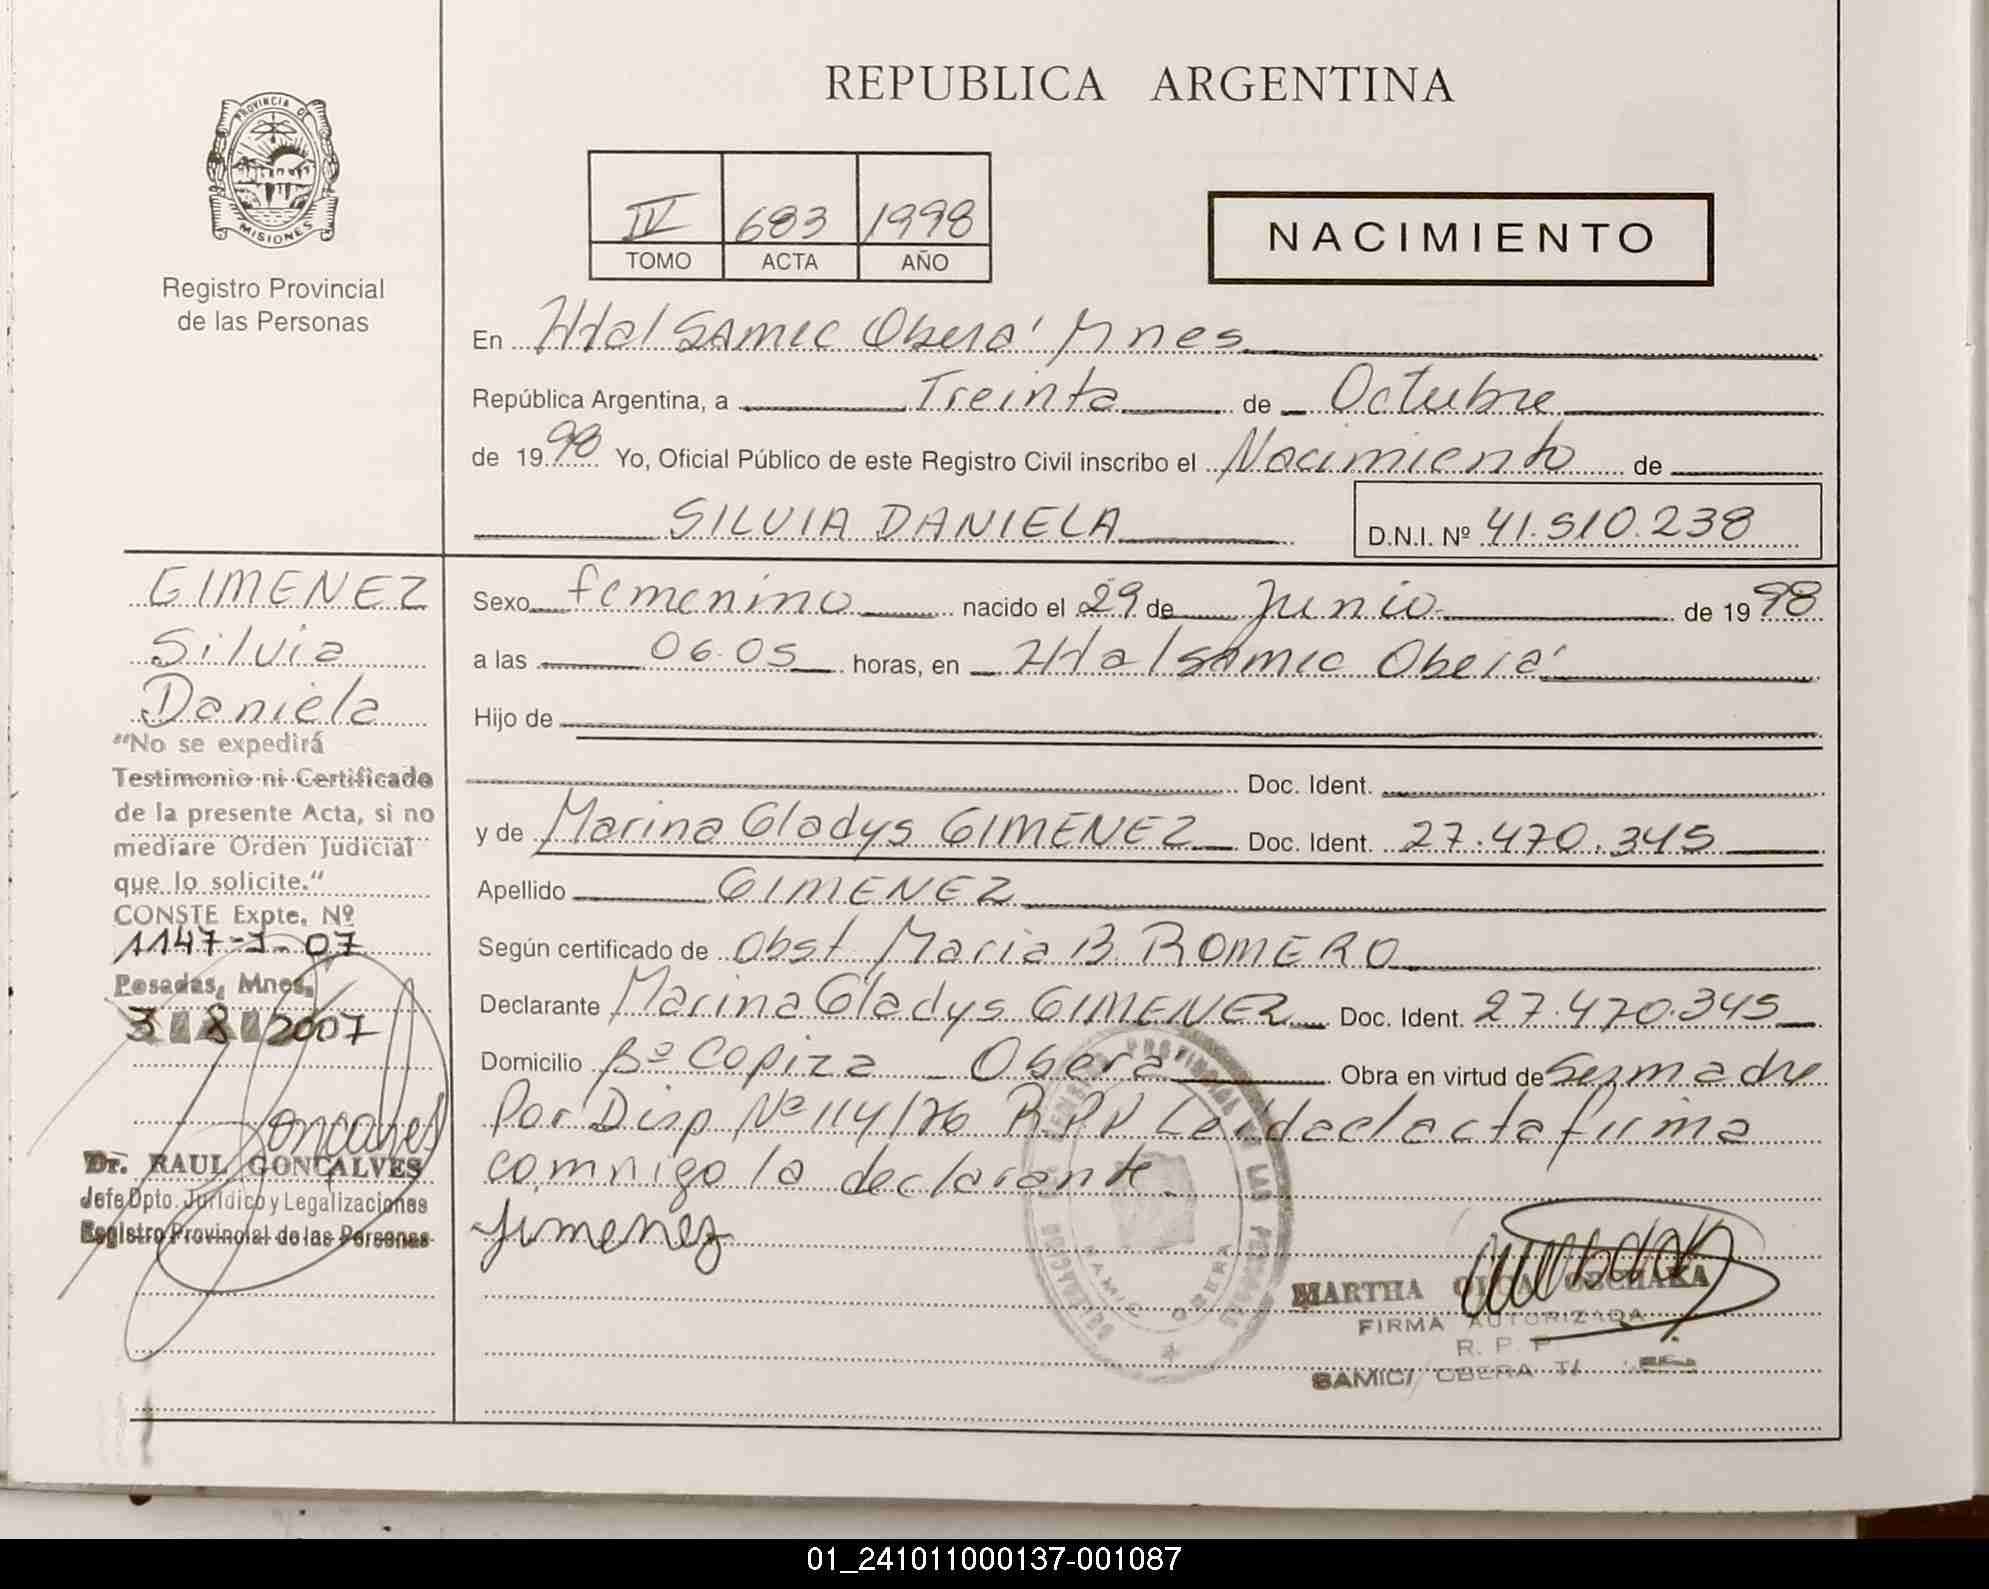 PROVINCIA DE
MISIONES
Registro Provincial
de las Personas
REPUBLICA ARGENTINA
IV 683 1998
TOMO ACTA AÑO
NACIMIENTO
En Htal SAMIC Oberá Mnes
República Argentina, a Treinta de Octubre
de 1998 Yo, Oficial Público de este Registro Civil inscribo el Nacimiento de
SILVIA DANIELA D.N.I. Nº 41.510.238
GIMENEZ
Silvia
Daniela
"No se expedirá
Testimonio ni Certificado
de la presente Acta, si no
mediare Orden Judicial
que lo solicite."
CONSTE Expte. Nº
1147-J-07
Posadas, Mnes,
3 8 2007
Goncalves
Dr. RAUL GONÇALVES
Jefe Dpto. Jurídico y Legalizaciones
Registro Provincial de las Personas
Sexo femenino nacido el 29 de Junio de 1998
a las 06.05 horas, en Htal samic Oberá
Hijo de
Doc. Ident.
y de Marina Gladys GIMENEZ Doc. Ident. 27.470.345
Apellido GIMENEZ
Según certificado de Obst Maria B. ROMERO
Declarante Marina Gladys GIMENEZ Doc. Ident. 27.470.345
Domicilio Bº Copiza Oberá Obra en virtud de Ser madre
Por Disp Nº 114/76 R.P.P Leída el acta firma
comnigo la declarante.
Jimenez
MARTHA OLGA
FIRMA AUTORIZADA
R. P. P.
SAMIC/ OBERA
SAMIC OBERA
01_241011000137-001087